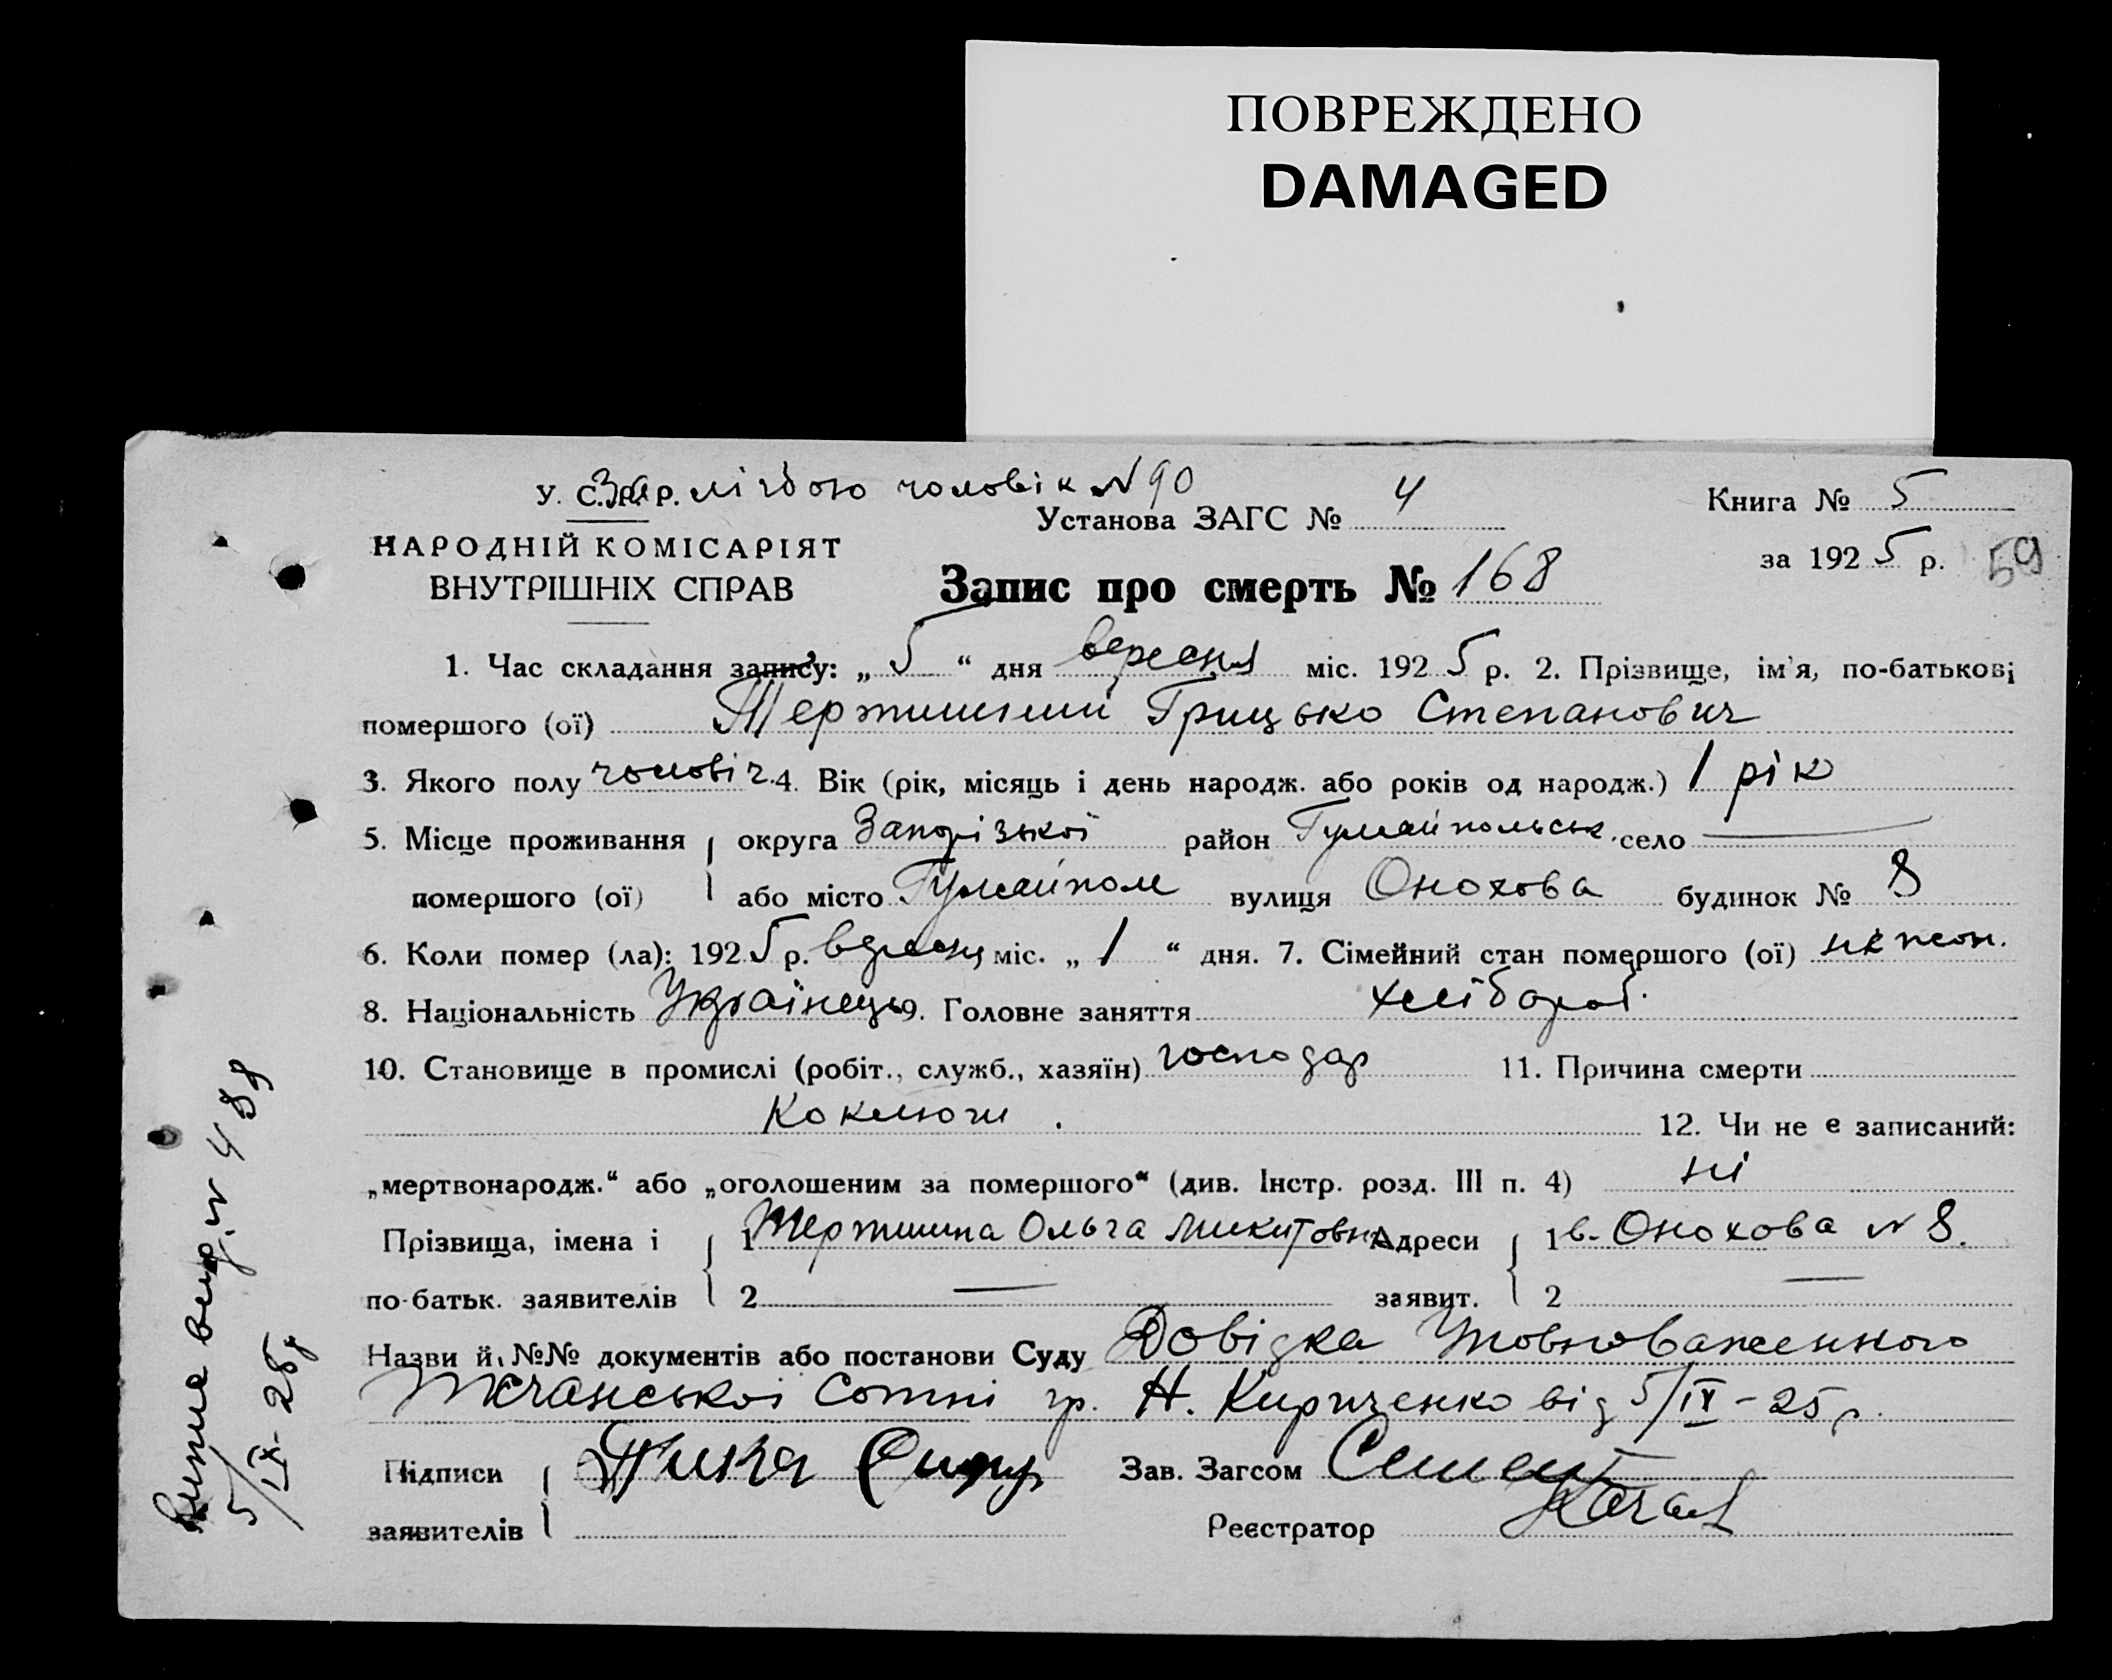 ПОВРЕЖДЕНО
DAMAGED
У. С.Р.Р. За лічбою чоловік № 90
Установа ЗАГС № 4
Книга № 5
НАРОДНІЙ КОМІСАРІЯТ
ВНУТРІШНІХ СПРАВ
за 1925 р. 59
Запис про смерть № 168
1. Час складання запису: „ 5 “ дня вересня міс. 1925 р. 2. Прізвище, ім'я, по-батькові
помершого (ої) Тертишний Грицько Степанович
3. Якого полу чоловіч. 4. Вік (рік, місяць і день народж. або років од народж.) 1 рік
5. Місце проживання округа Запорізької район Гуляйпольськ. село —
помершого (ої) або місто Гуляйполе вулиця Онохова будинок № 8
6. Коли помер (ла): 1925 р. вересня міс. „ 1 “ дня. 7. Сімейний стан помершого (ої) не жон.
8. Національність Українець 9. Головне заняття хлібороб.
10. Становище в промислі (робіт., служб., хазяїн) господар 11. Причина смерти
Коклюш . 12. Чи не є записаний:
„мертвонародж.“ або „оголошеним за помершого“ (див. Інстр. розд. III п. 4) ні
Прізвища, імена і 1 Тертишна Ольга Микитовна Адреси 1 в. Онохова № 8.
по-батьк. заявителів 2 — заявит. 2 —
Назви й №№ документів або постанови Суду Довідка Уповноваженного
сотні гр. Н. Кириченко від 5/IX-25 р.
Підписи Зав. Загсом
заявителів Реєстратор
№ 489
5/IX-25 р